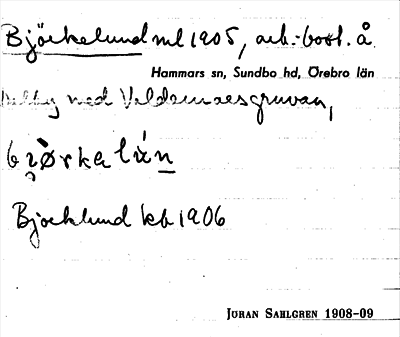 Björkelund ml 1905, arb.-bost. å
Hammars sn, Sundbo hd, Örebro län
Dalby med Valdemarsgruvan,
bjòrkelún
Bjorklund kb 1906
JÖRAN SAHLGREN 1908-09